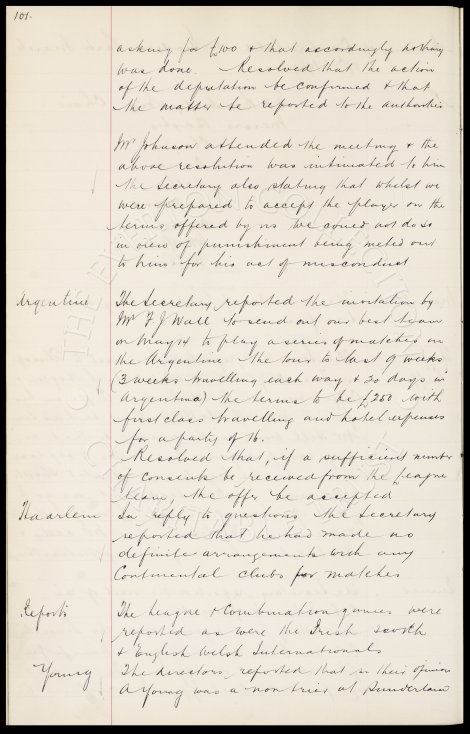 101.
asking for £100 & that accordingly nothing
was done. Resolved that the action
of the deputation be confirmed & that
the matter be reported to the authorities
Mr Johnson attended the meeting & the
above resolution was intimated to him
the Secretary also stating that whilst we
were prepared to accept the player on the
terms offered by us we could not do so
in view of punishment being meted out
to him for his act of misconduct
Argentine The Secretary reported the invitation by
Mr F J Wall to send out our best team
on May 14 to play a series of matches in
the Argentine the tour to last 9 weeks
(3 weeks travelling each way & 20 days in
Argentina) the terms to be £250 with
first class travelling and hotel expenses
for a party of 16.
Resolved that, if a sufficient number
of consents be received from the League
team, the offer be accepted
Haarlem In reply to questions the Secretary
reported that he had made no
definite arrangements with any
Continental clubs for matches
Reports The League & Combination games were
reported as were the Irish Scotch
& English Welsh Internationals
Young The directors reported that in their opinion
A Young was a non trier at Sunderland